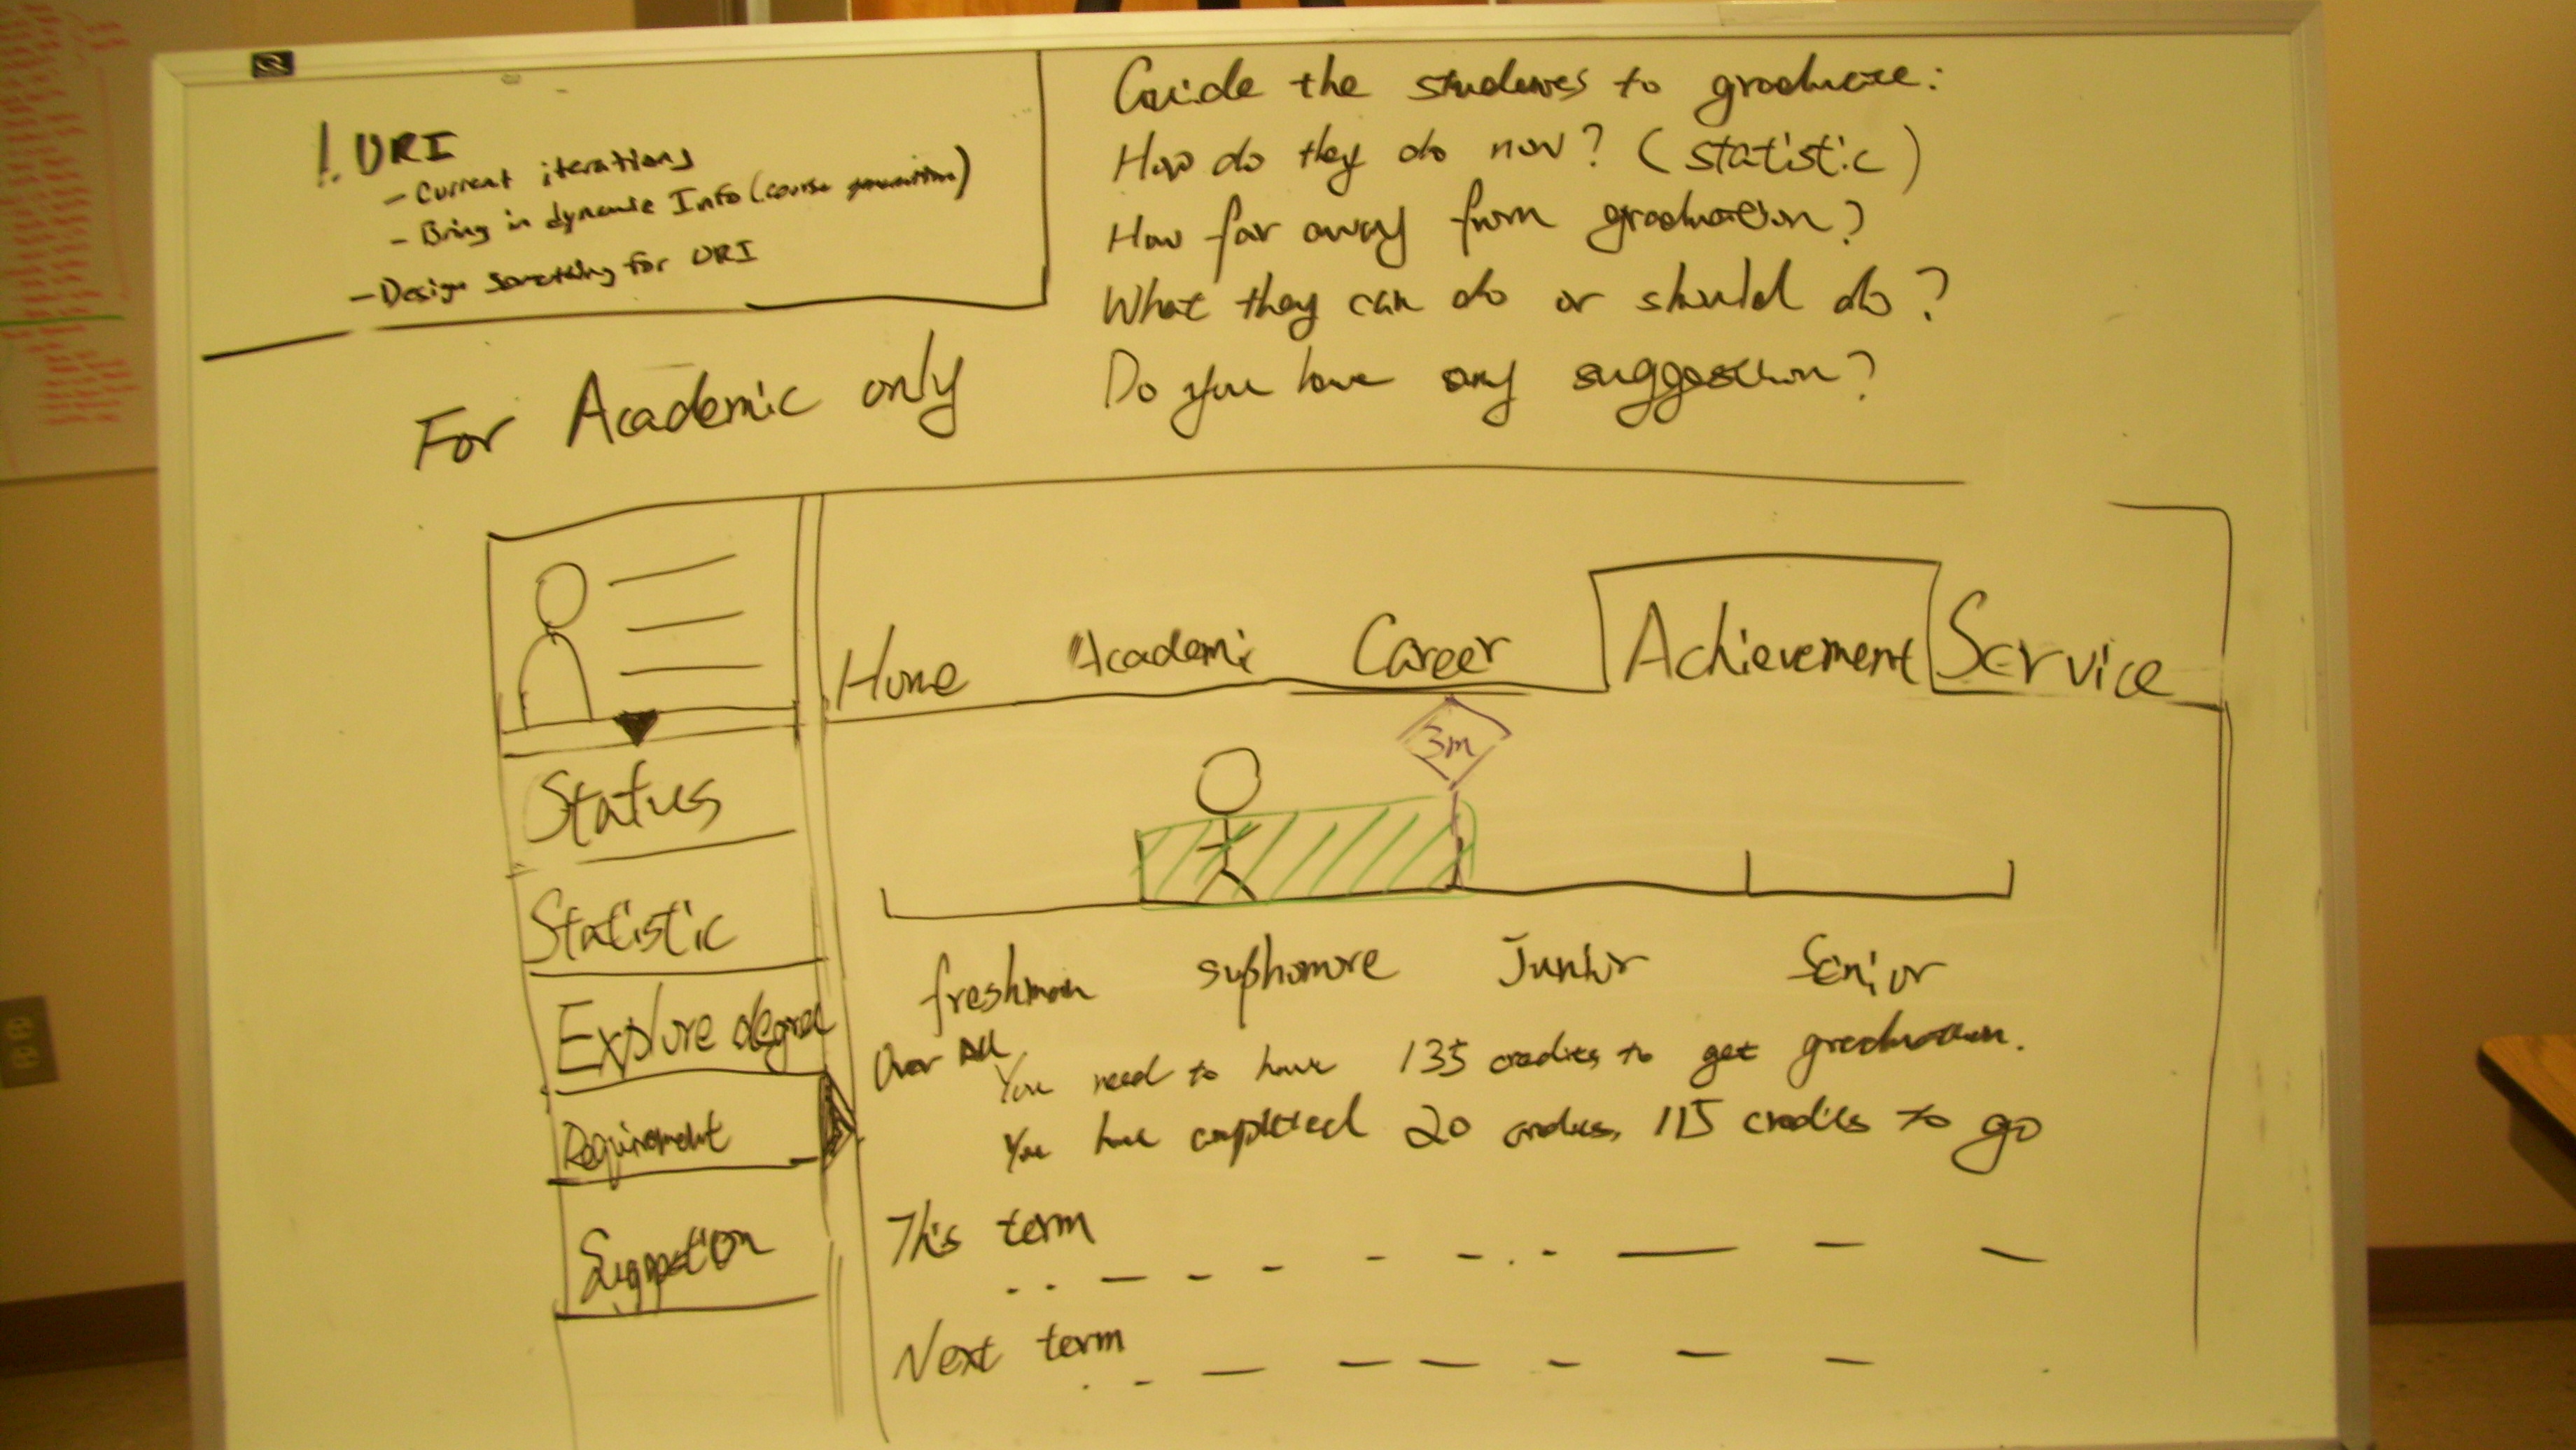 1. URI
- Current iterations
- Bring in dynamic Info (course generation)
- Design something for URI
Guide the students to graduate:
How do they do now? (statistic)
How far away from graduation?
What they can do or should do?
Do you have any suggestion?
For Academic only
Home Academi Career Achievement Service
3m
Status
Statistic
Explore degree
Requirement
Suggestion
freshman sophomore Junior Senior
Over All
You need to have 135 credits to get graduation.
You have completed 20 credits, 115 credits to go
This term
Next term